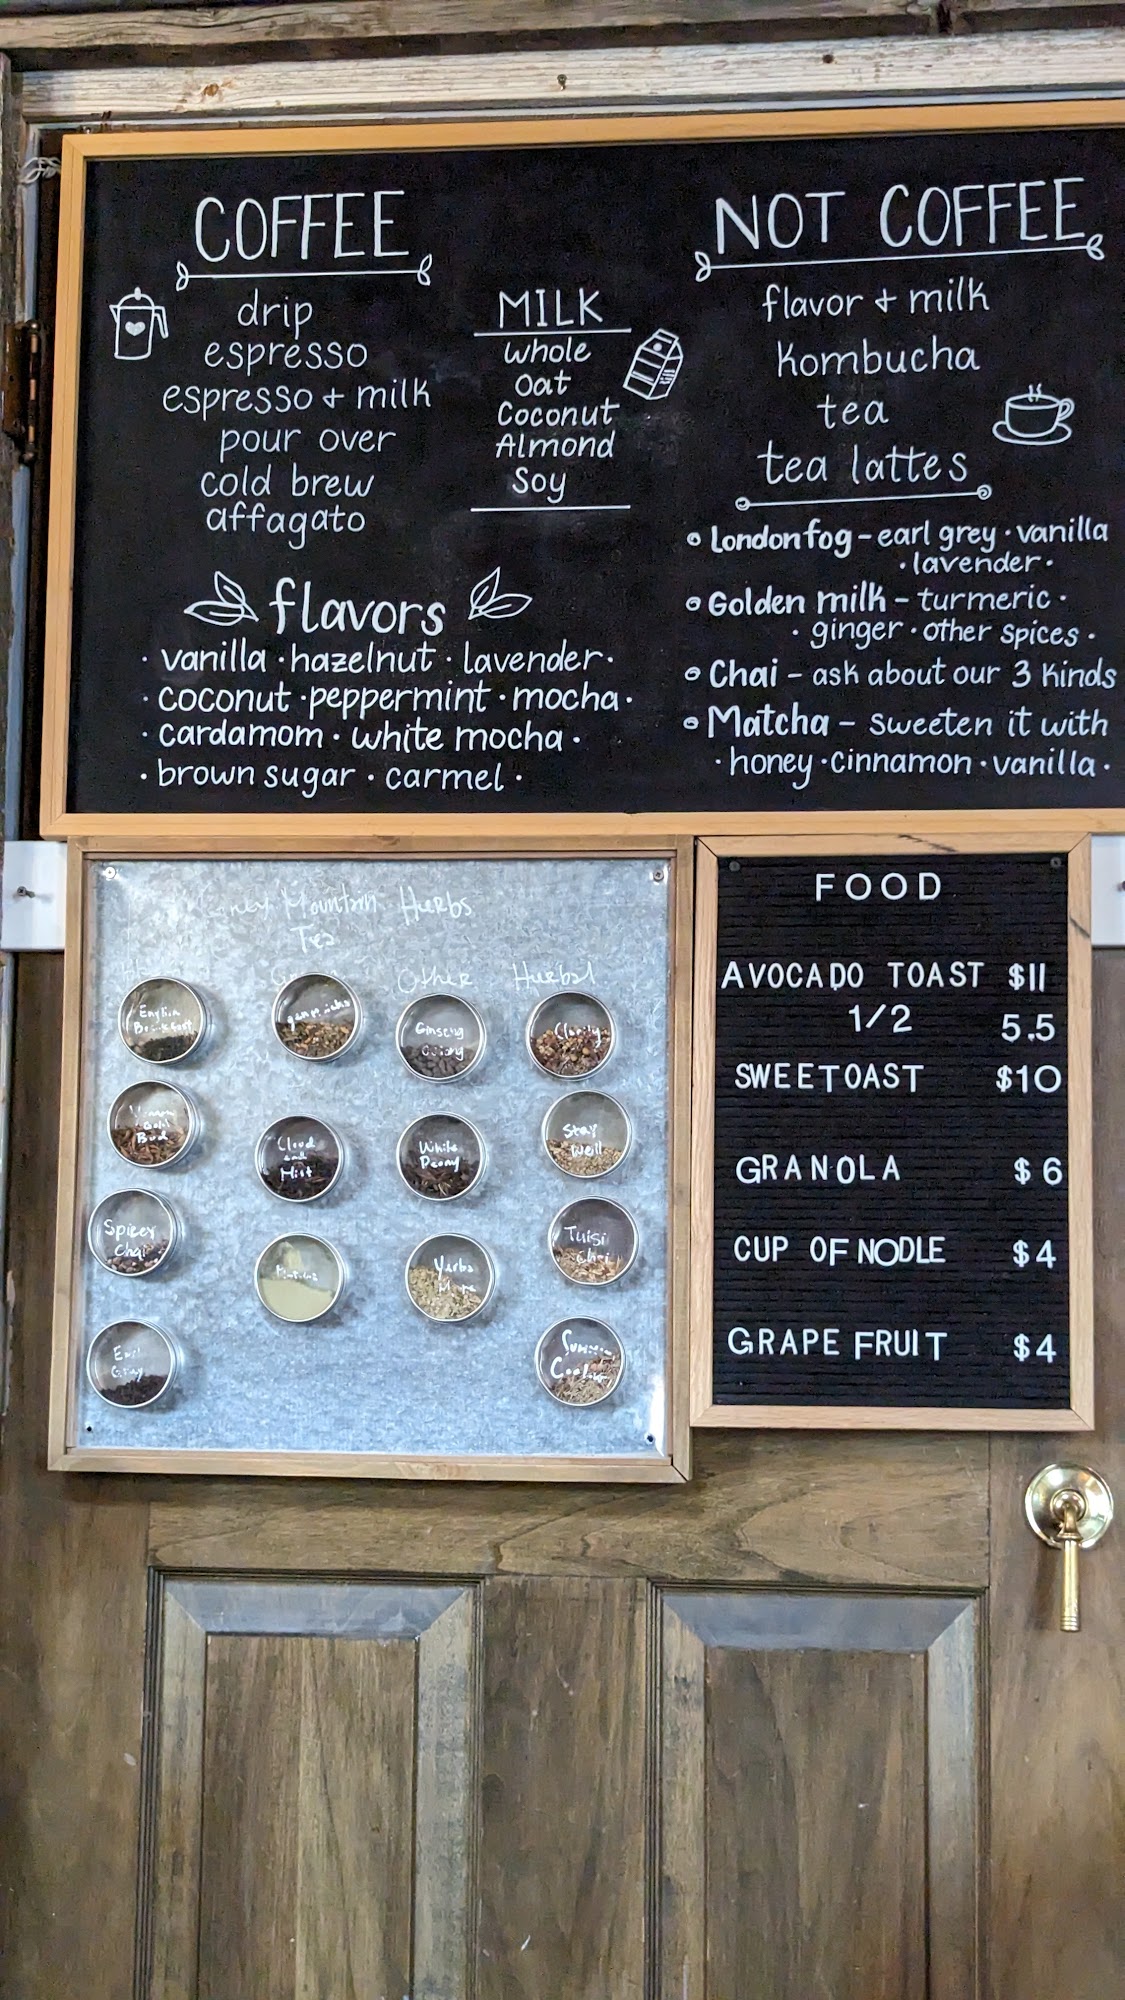 COFFEE
drip
espresso
espresso + milk
pour over
cold brew
affagato
MILK
whole
oat
Coconut
Almond
Soy
flavors
· vanilla · hazelnut · lavender ·
· coconut · peppermint · mocha ·
· cardamom · white mocha ·
· brown sugar · carmel ·
NOT COFFEE
flavor + milk
Kombucha
tea
tea lattes
Londonfog - earl grey · vanilla
· lavender ·
Golden milk - turmeric ·
· ginger · other spices ·
Chai - ask about our 3 Kinds
Matcha - sweeten it with
· honey · cinnamon · vanilla ·
Mountain Herbs
Tea
Other
Herbal
English
Breakfast
Bud
Spicey
Chai
Earl
Grey
Cloud
and
Mist
Ginseng
Oolong
White
Peony
Yerba
Clarity
Stay
Well
Tulsi
Chai
FOOD
AVOCADO TOAST $11
1/2 5.5
SWEETOAST $10
GRANOLA $6
CUP OF NODLE $4
GRAPE FRUIT $4